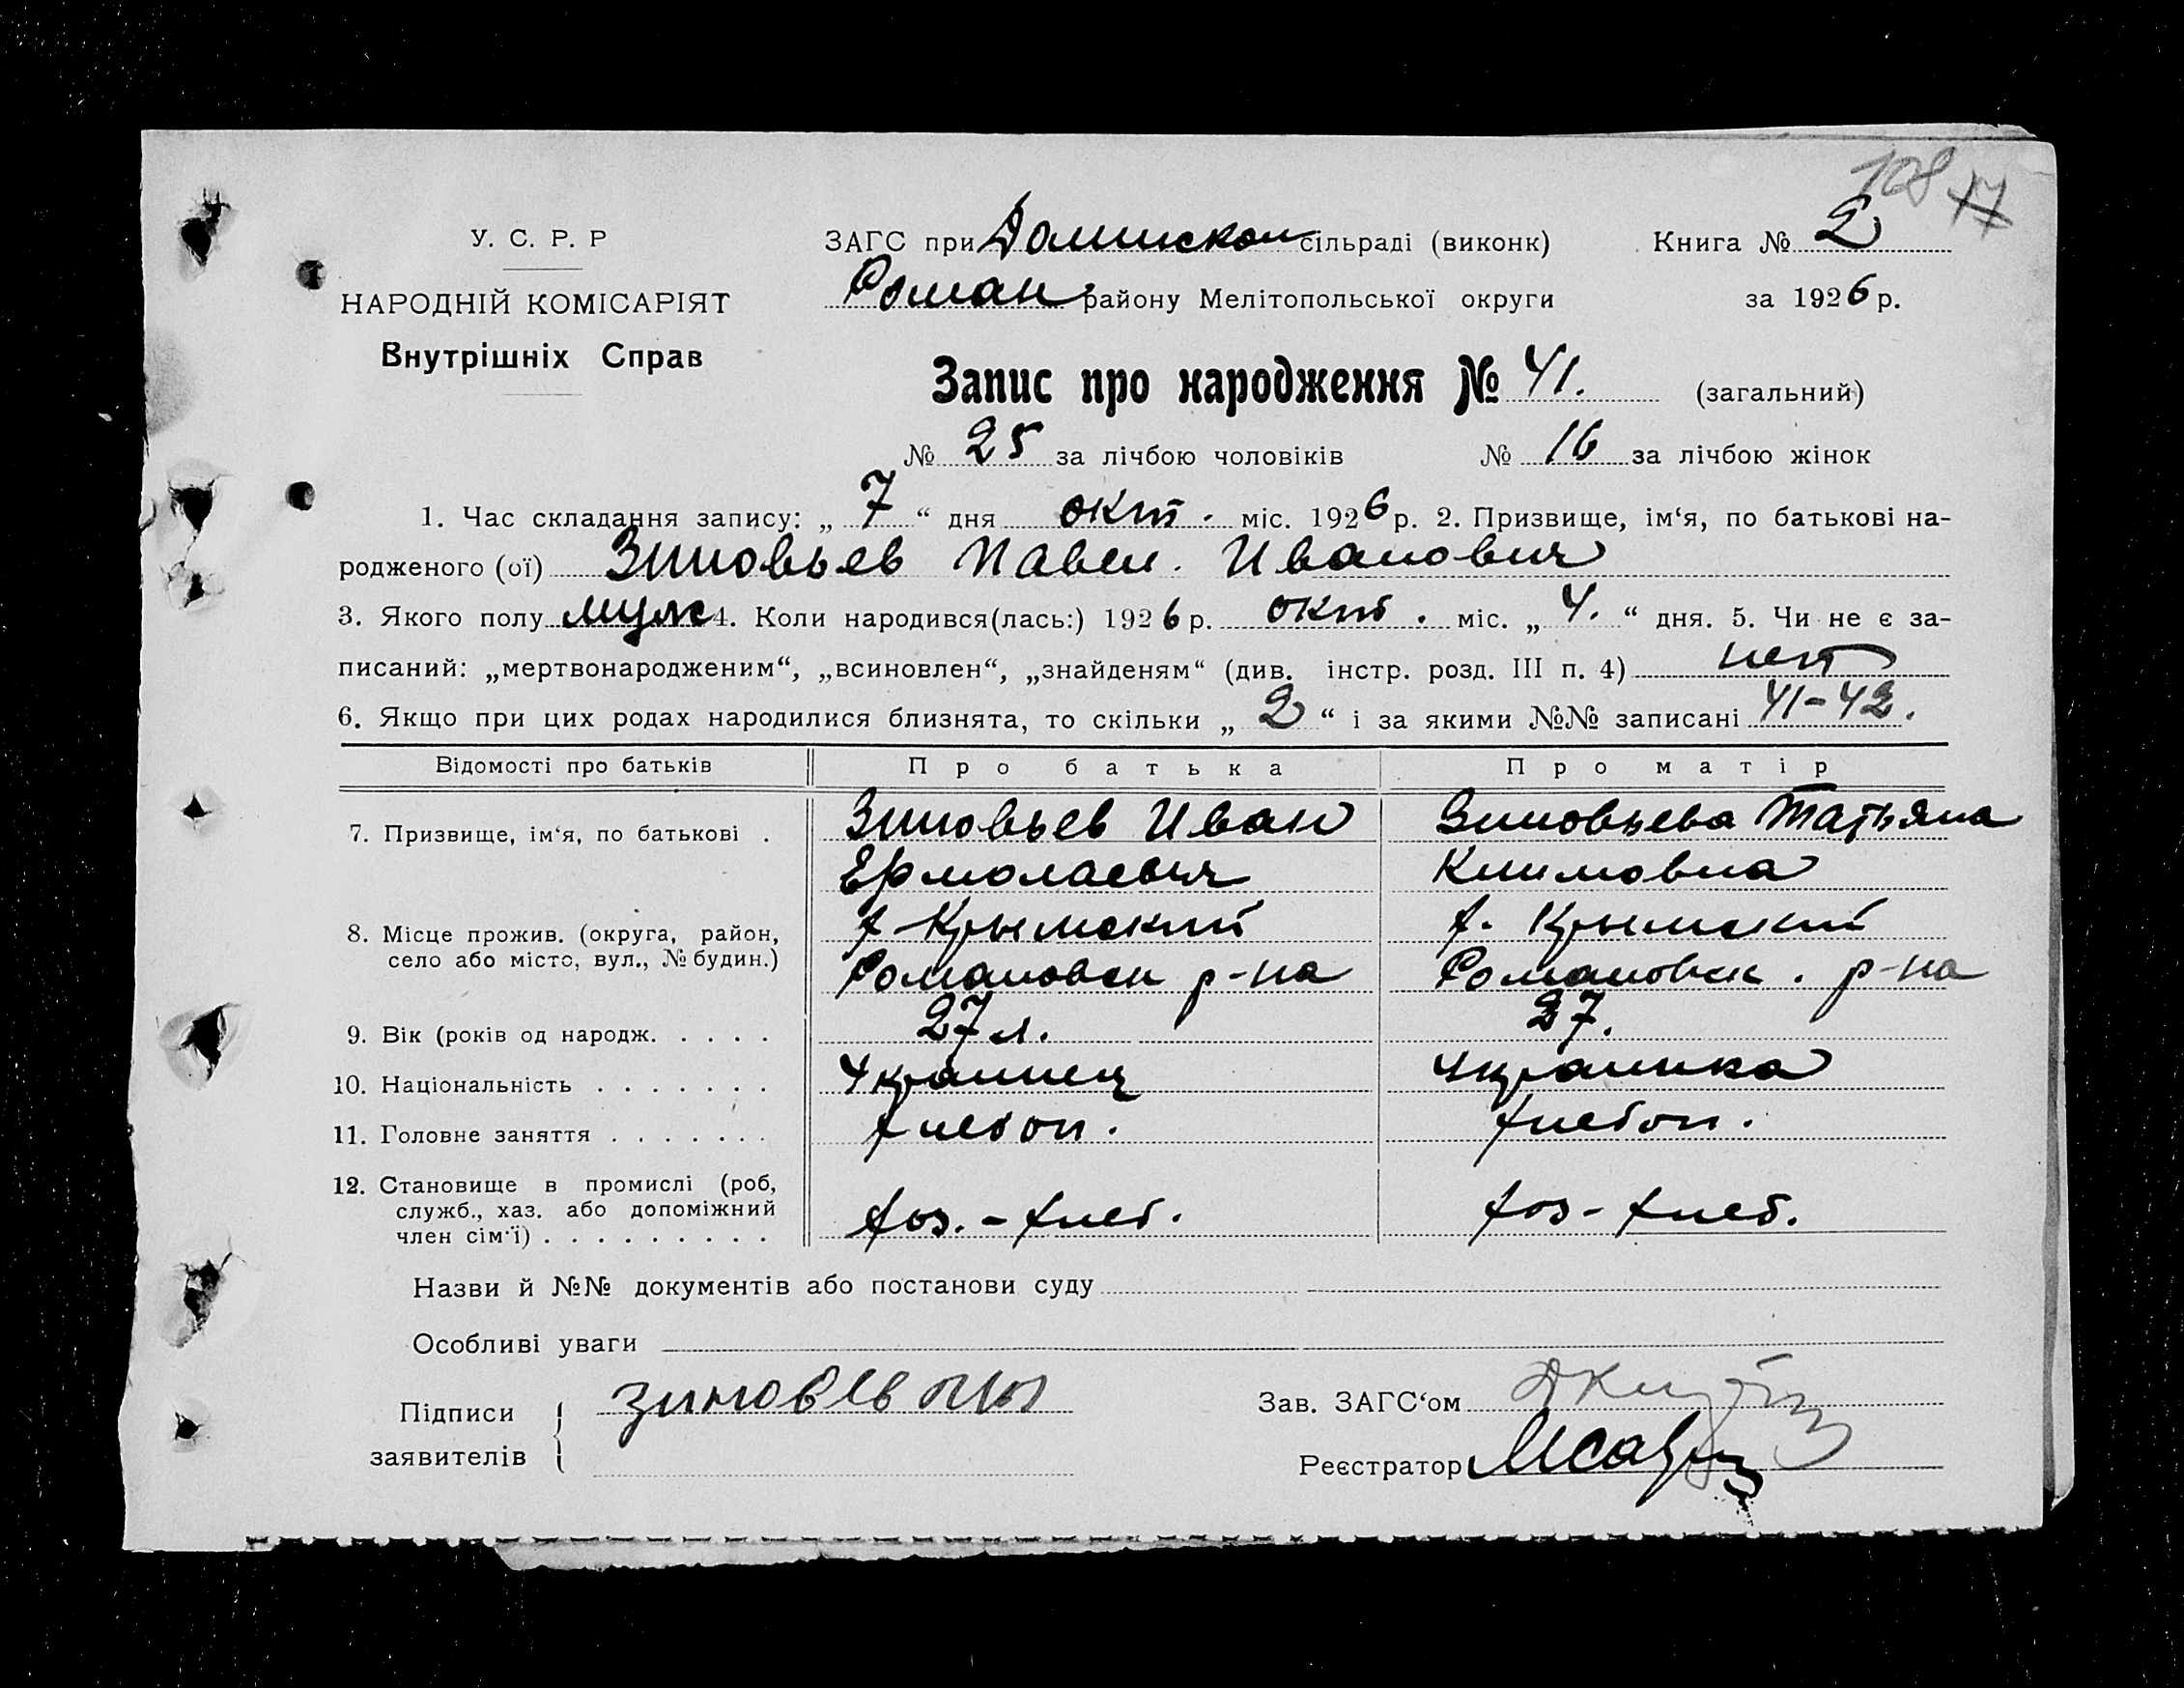 108 17
У. С. Р. Р
НАРОДНІЙ КОМІСАРІЯТ
Внутрішніх Справ
ЗАГС при сільраді (виконк) Книга № 2
Роман району Мелітопольської округи за 1926 р.
Запис про народження № 41. (загальний)
№ 25 за лічбою чоловіків № 16 за лічбою жінок
1. Час складання запису: „ 7 “ дня окт. міс. 1926 р. 2. Призвище, ім‘я, по батькові на-
родженого (ої) Зиновьев Павел. Иванович
3. Якого полу муж 4. Коли народився(лась:) 1926 р. окт. міс. „ 4. “ дня. 5. Чи не є за-
писаний: „мертвонародженим“, „всиновлен“, „знайденям“ (див. інстр. розд. III п. 4) нет
6. Якщо при цих родах народилися близнята, то скільки „ 2 “ і за якими №№ записані 41-42.
Відомості про батьків Про батька Про матір
7. Призвище, ім‘я, по батькові . Зиновьев Иван Зиновьева Татьяна
Ермолаевич Климовна
8. Місце прожив. (округа, район, х Крымский х. Крымский
село або місто, вул., № будин.) Романовск р-на Романовск. р-на
9. Вік (років од народж. . . . . 27 л. 27.
10. Національність . . . . . . . Украинец Украинка
11. Головне заняття . . . . . . . хлебоп. хлебоп.
12. Становище в промислі (роб,
служб., хаз. або допоміжний хоз.-хлеб. хоз-хлеб.
член сім‘ї) . . . . . . . . .
Назви й №№ документів або постанови суду
Особливі уваги
Підписи зиновев
заявителів
Зав. ЗАГС‘ом
Реєстратор